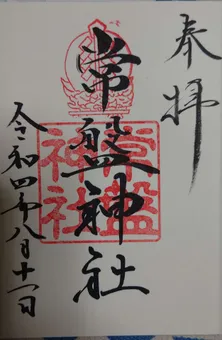 奉拝
常盤神社
常盤神社
令和四年八月十一日